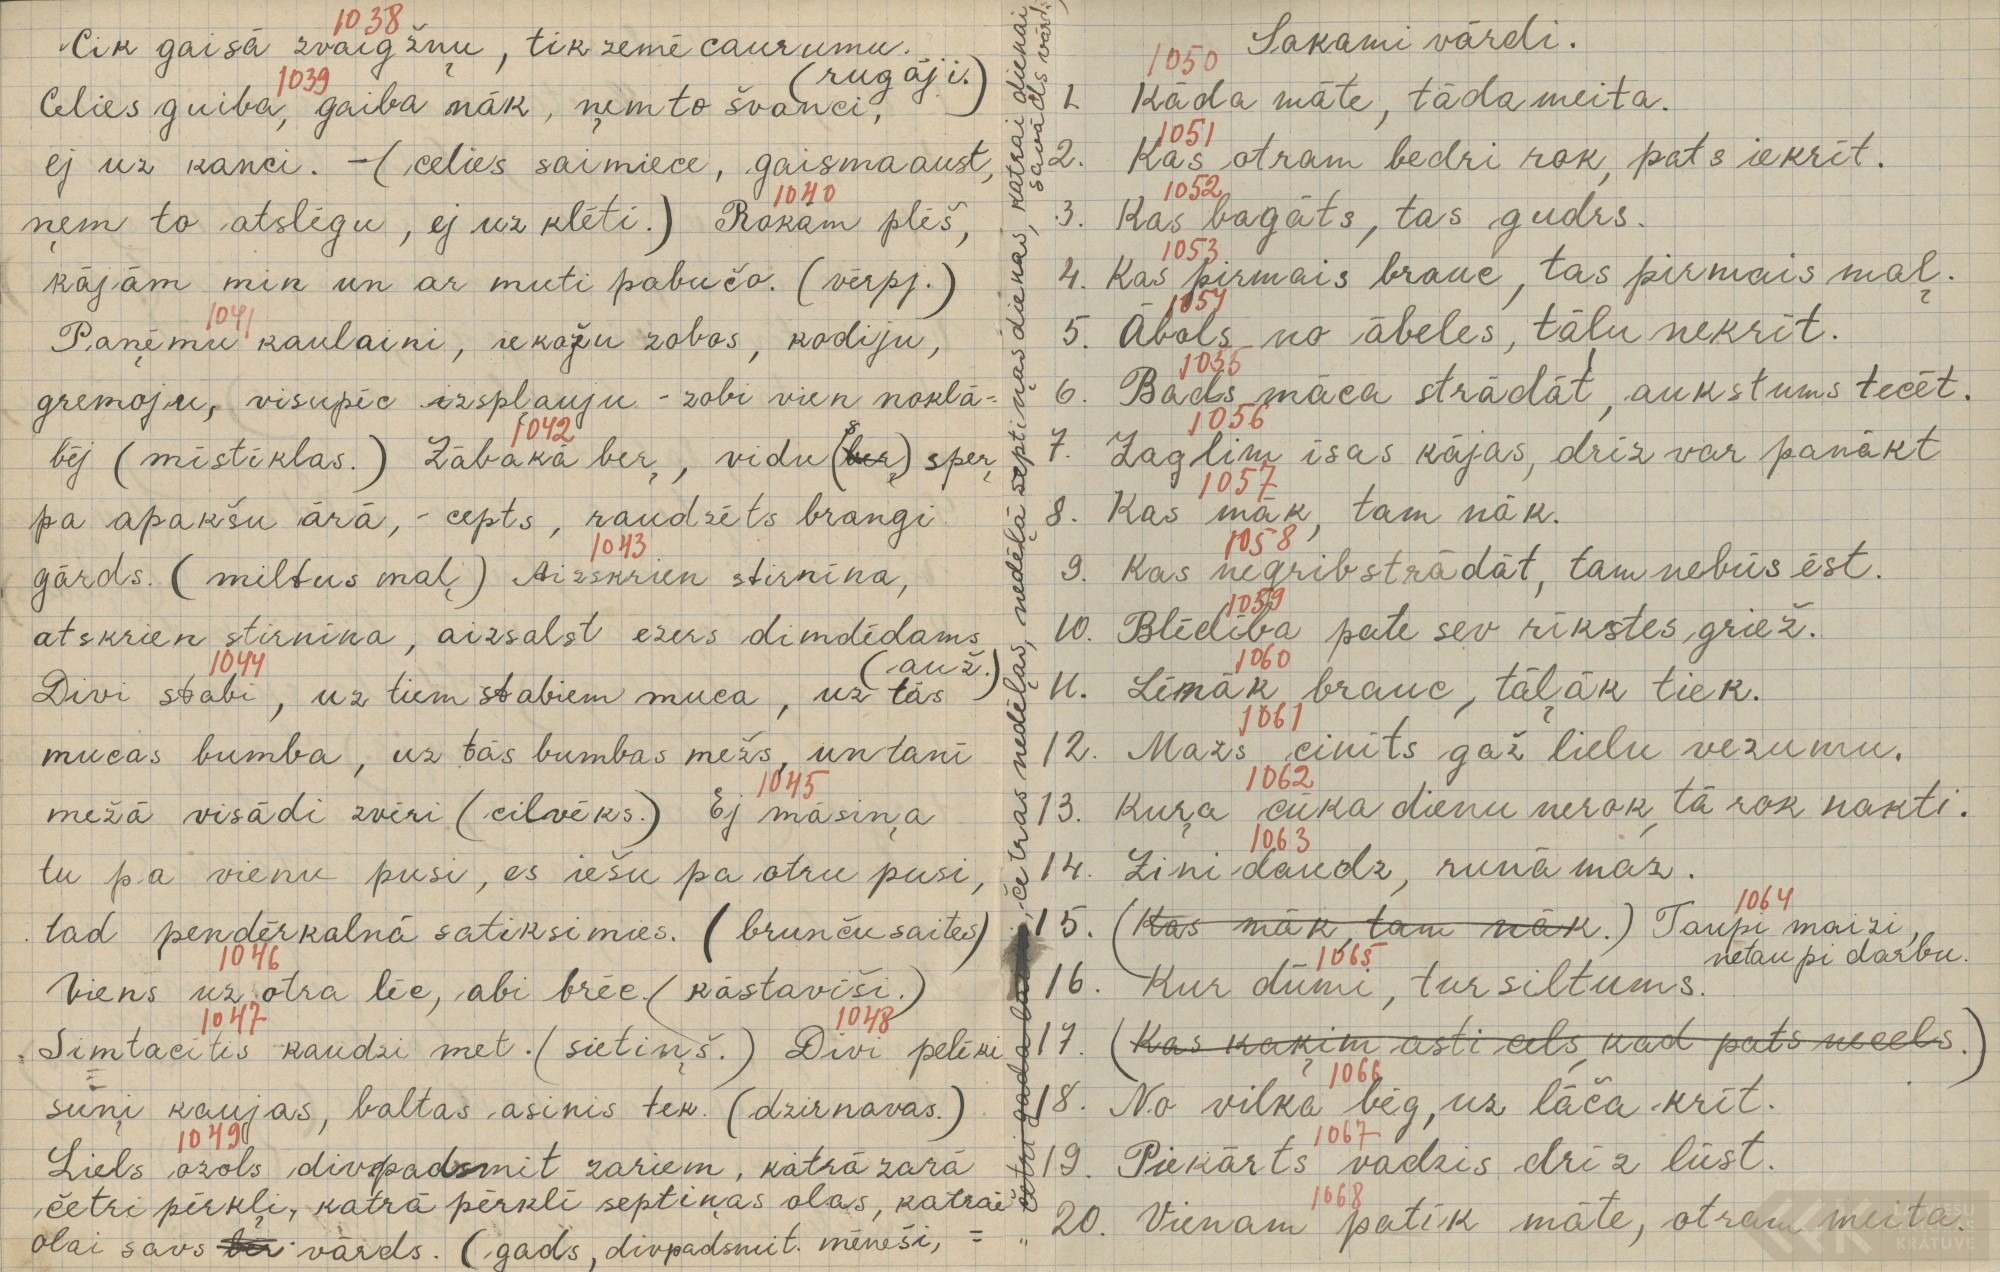 1038
Cik gaisā zvaigžņu, tik zemē caurumu.
(rugāji.)
1039
Celies guiba, gaiba nāk, ņem to švanci,
ej uz kanci. - (celies saimiece, gaisma aust,
1040
ņem to atslēgu, ej uz klēti.) Rokām plēš,
kājām min un ar muti pabučo. (vērpj.)
1041
Paņēmu kaulaini, iekožu zobos, kodiju,
gremoju, visupēc izspļauju - zobi vien noklā-
1042
bēj (mīstīklas.) Zābakā beŗ, vidū (beŗ) speŗ
pa apakšu ārā, - cepts, raudzēts brangi
1043
gārds. (miltus maļ) Aizskrien stirniņa,
atskrien stirniņa, aizsalst ezers dimdēdams
(auž.)
1044
Divi stabi, uz tiem stabiem muca, uz tās
mucas bumba, uz tās bumbas mežs, un tanī
1045
mežā visādi zvēri (cilvēks.) Ej māsiņa
tu pa vienu pusi, es iešu pa otru pusi,
tad pendērkalnā satiksimies. (brunču saites)
1046
Viens uz otra lēc, abi brēc. (kāstavīši.)
1047 1048
Simtacītis kaudzi met. (sietiņš.) Divi pelēki
suņi kaujas, baltas asinis tek. (dzirnavas.)
1049
Liels ozols divpadsmit zariem, katrā zarā
četri pērkļi, katrā pērklī septiņas olas, katrai
olai savs vārds. (gads, divpadsmit mēneši, =
četri gada, četras nedēļas, nedēļā septiņas dienas, katrai dienai
savāds vārds)
Sakami vārdi.
1050
1. Kāda māte, tāda meita.
1051
2. Kas otram bedri rok, pats iekrīt.
1052
3. Kas bagāts, tas gudrs.
1053
4. Kas pirmais brauc, tas pirmais maļ.
1054
5. Ābols no ābeles, tālu nekrīt.
1055
6. Bads māca strādāt, aukstums tecēt.
1056
7. Zaglim īsas kājas, drīz var panākt
1057
8. Kas māk, tam nāk.
1058
9. Kas negrib strādāt, tam nebūs ēst.
1059
10. Blēdība pate sev rīkstes griež.
1060
11. Lēnāk brauc, tāļāk tiek.
1061
12. Mazs cinīts gaž lielu vezumu.
1062
13. Kuŗa cūka dienu nerok, tā rok nakti.
1063
14. Zini daudz, runā maz.
1064
15. (Kas māk, tam nāk.) Taupi maizi,
netaupi darbu.
1065
16. Kur dūmi, tur siltums.
17. (Kas kaķim asti cels, kad pats necels.)
1066
18. No vilka bēg, uz lāča krīt.
1067
19. Piekārts vadzis drīz lūst.
1068
20. Vienam patīk māte, otram meita.